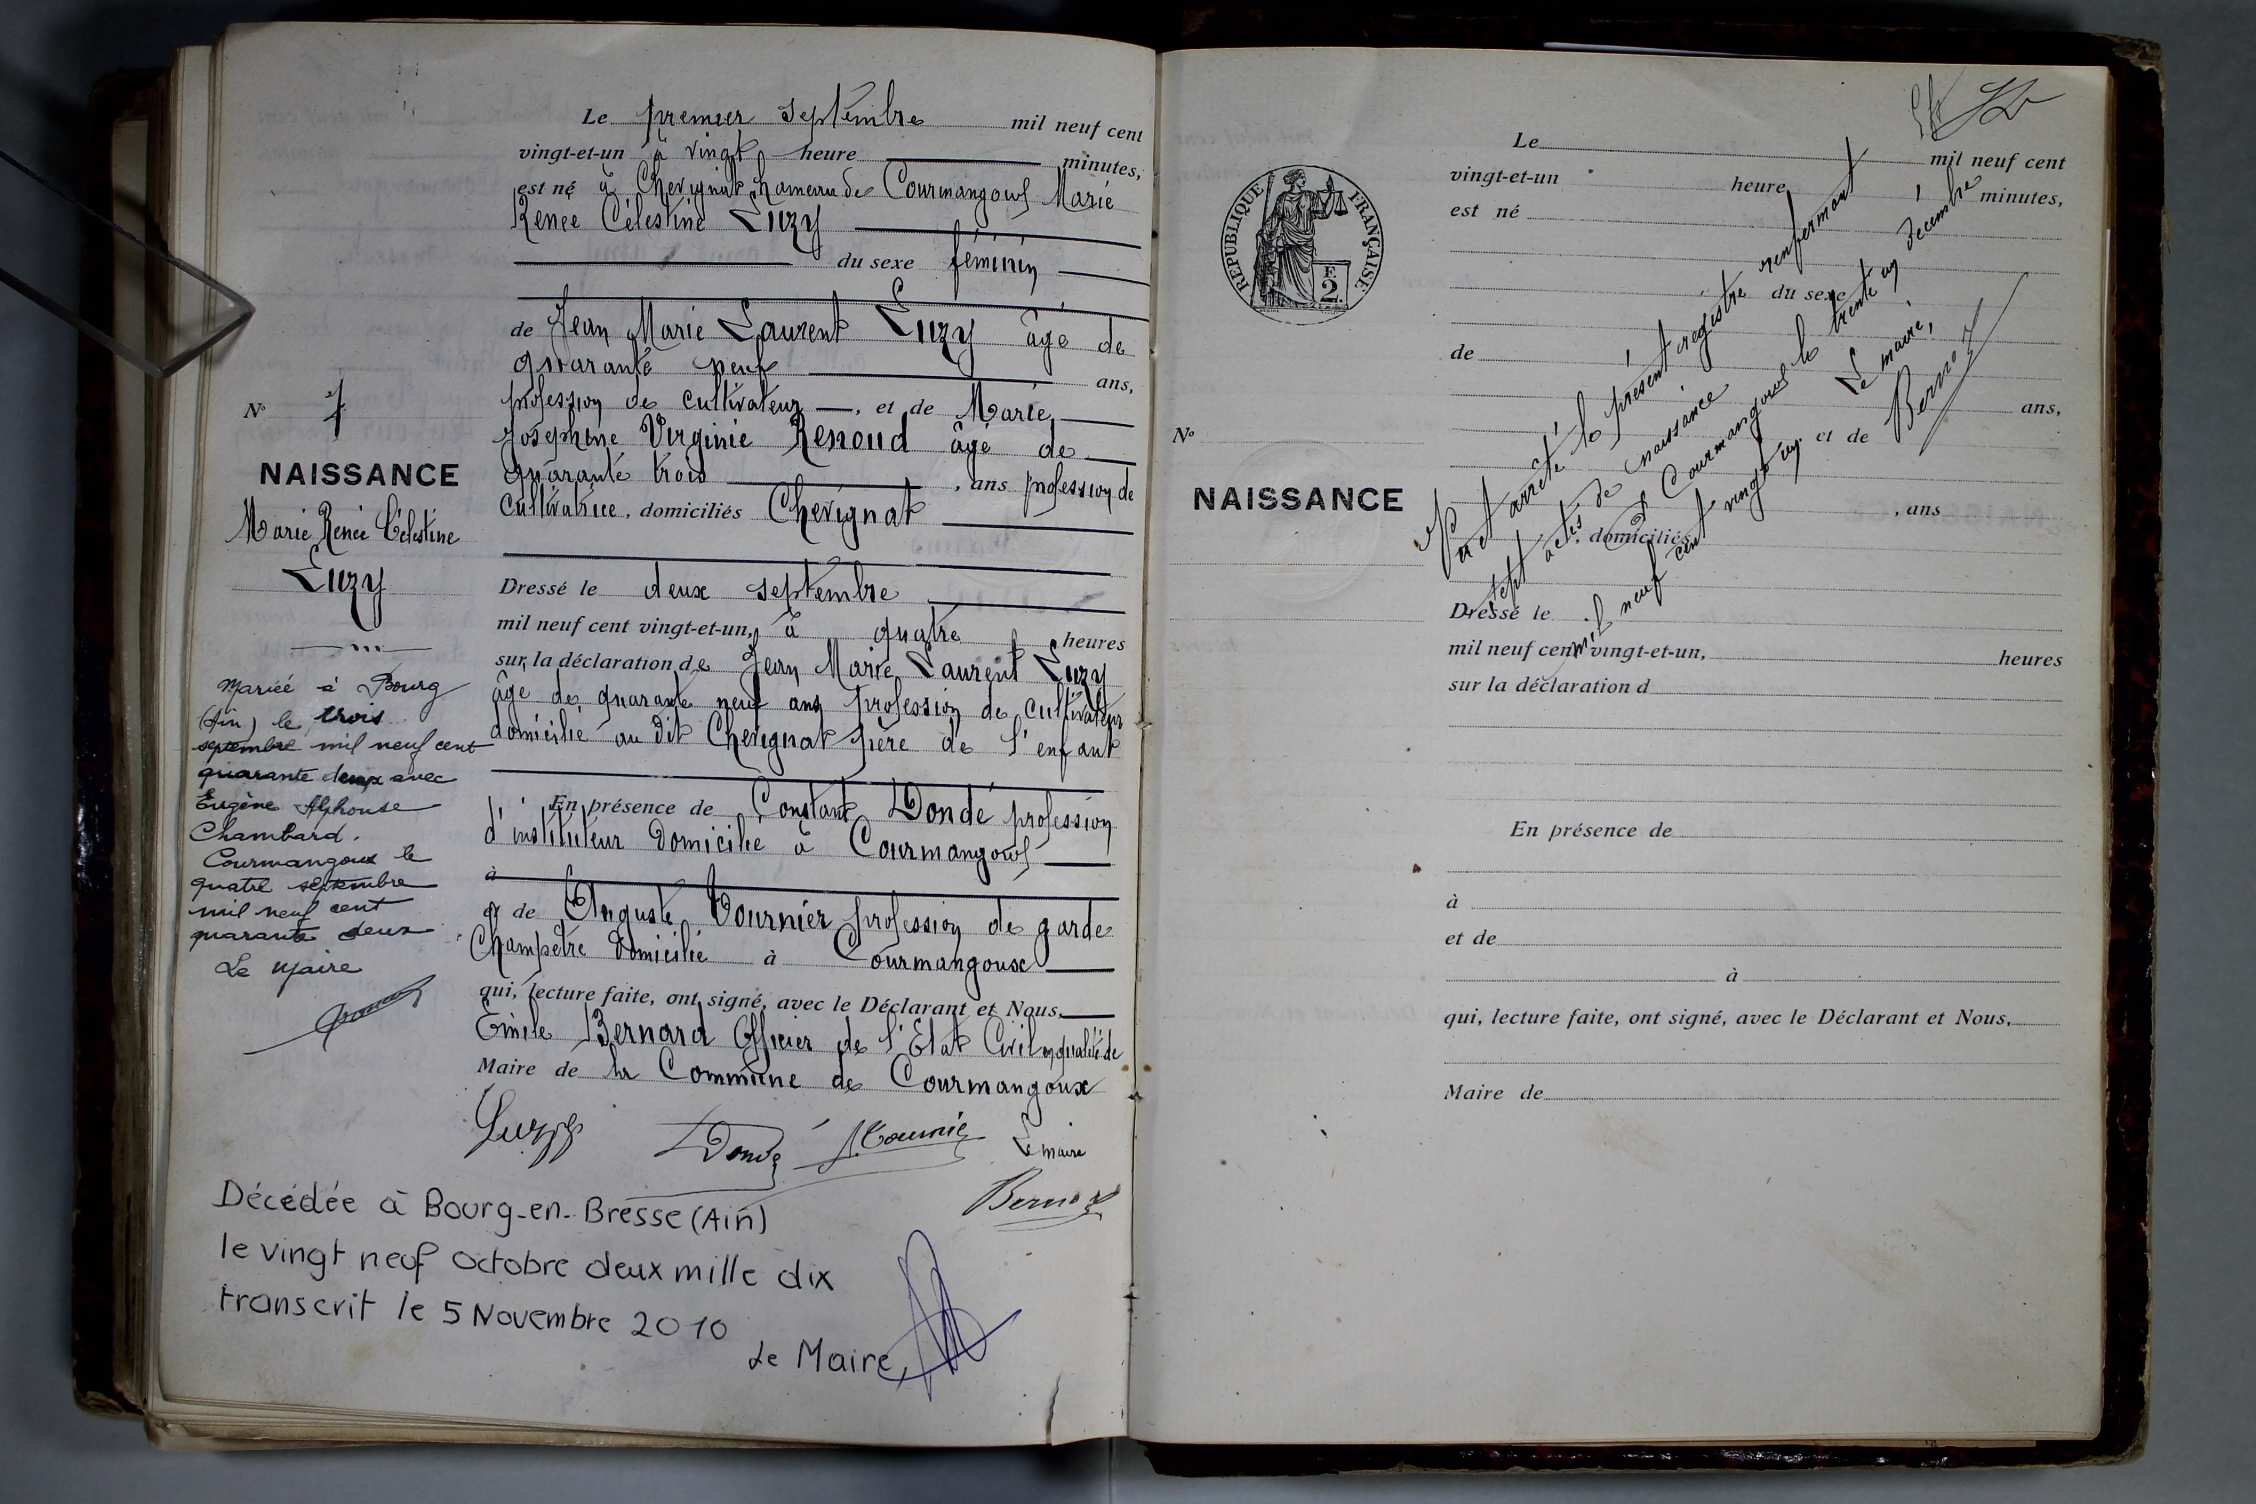 Le premier septembre mil neuf cent
vingt-et-un à vingt heure minutes,
est né à Chevignat hameau de Courmangoux Marie
Renée Célestine Luzy
du sexe féminin
de Jean Marie Laurent Luzy âgé de
quarante neuf ans,
profession de cultivateur, et de Marie
Joséphine Virginie Renoud âgé de
quarante trois, ans profession de
cultivatrice, domiciliés Chevignat
Dressé le deux septembre
mil neuf cent vingt-et-un, à quatre heures
sur la déclaration de Jean Marie Laurent Luzy
âgé de quarante neuf ans profession de cultivateur
domicilié au dit Chevignat père de l'enfant
En présence de Constant Dondé profession
d'instituteur domicilié à Courmangoux
à
et de Auguste Tournier profession de garde
Champêtre domicilié à Courmangoux
qui, lecture faite, ont signé, avec le Déclarant et Nous,
Emile Bernard Officier de l'Etat Civil en qualité de
Maire de la Commune de Courmangoux
Luzy Dondé A. Tournié Le maire
Bernard
N° 7
NAISSANCE
Marie Renée Célestine
Luzy
Mariée à Bourg
(Ain) le trois
septembre mil neuf cent
quarante deux avec
Eugène Alphonse
Chambard.
Courmangoux le
quatre septembre
mil neuf cent
quarante deux
Le Maire
Décédée à Bourg-en-Bresse (Ain)
le vingt neuf octobre deux mille dix
transcrit le 5 Novembre 2010
Le Maire,
REPUBLIQUE FRANÇAISE
F.
2.
N°
NAISSANCE
Le mil neuf cent
vingt-et-un heure minutes,
est né
du sexe
de
ans,
et de
, ans
, domiciliés
Dressé le
mil neuf cent vingt-et-un, heures
sur la déclaration d
En présence de
à
et de
à
qui, lecture faite, ont signé, avec le Déclarant et Nous,
Maire de
Vu et arrêté le présent registre renfermant
sept actes de naissance
Courmangoux le trente un décembre
mil neuf cent vingt un.
Le maire,
Bernard